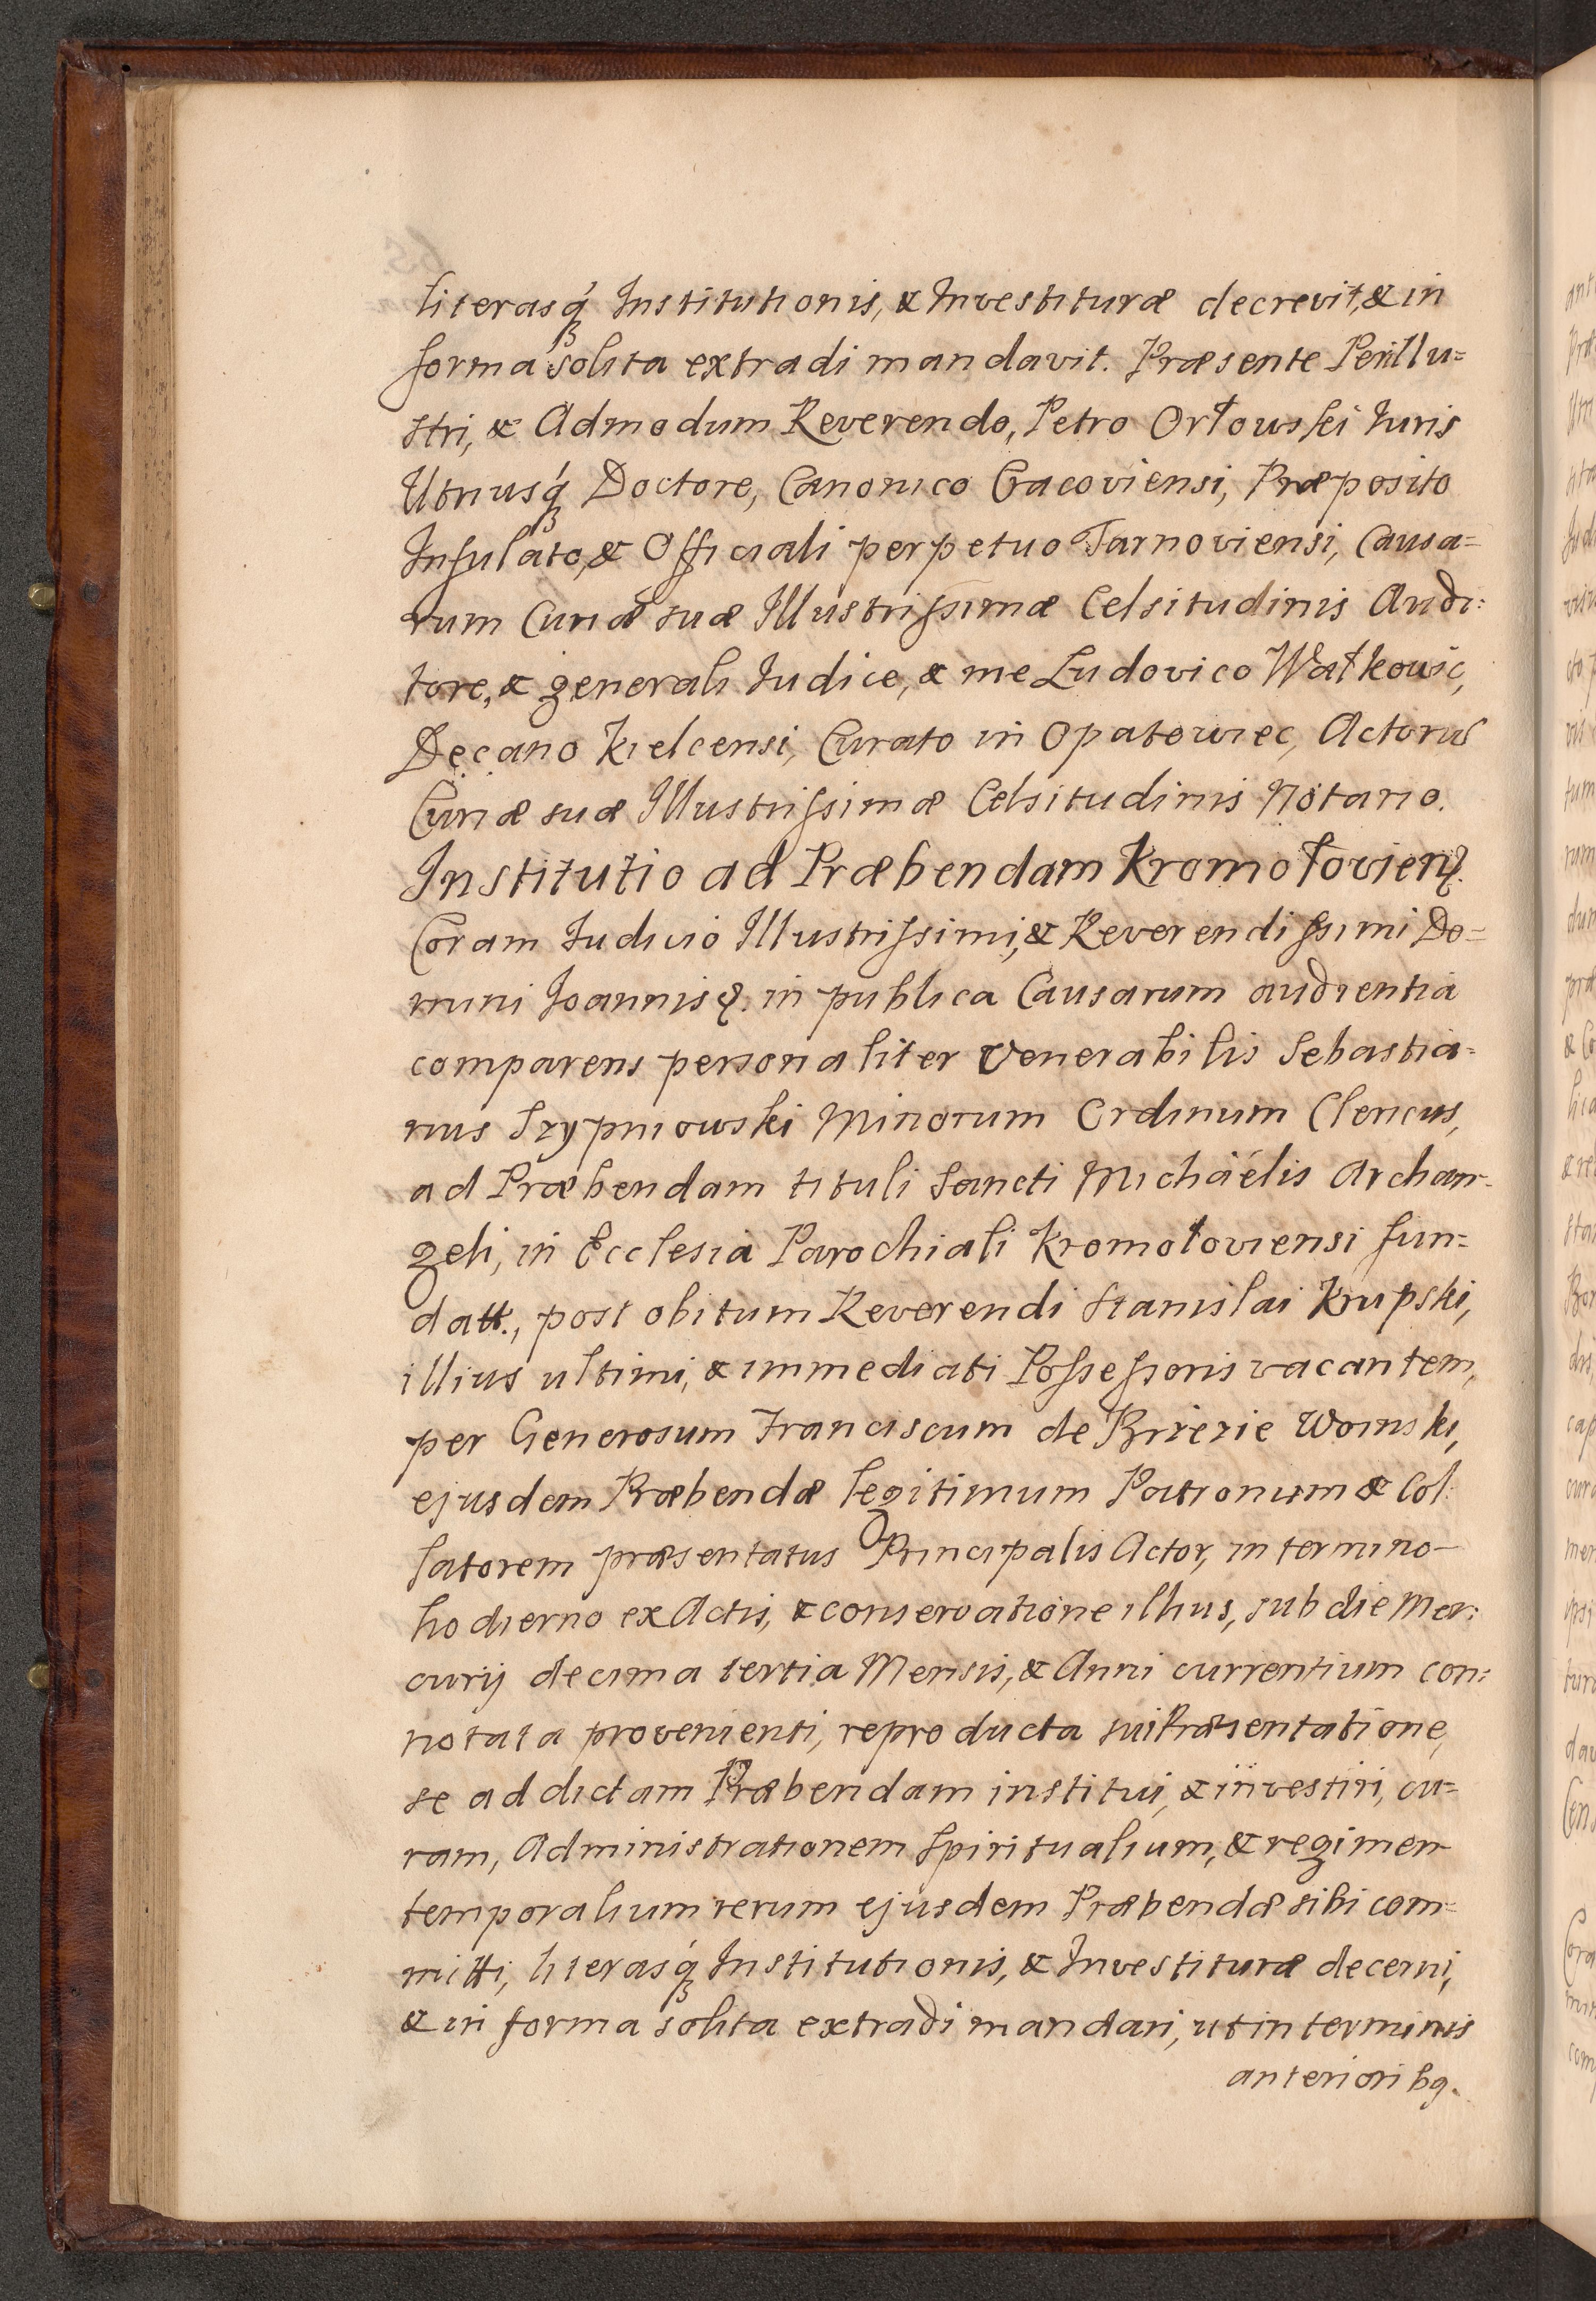 literasq́ꝫ Institutionis, & Investituræ decrevit, & in
forma solita extradi mandavit. Præsente Perillu=
stri, & Admodum Reverendo, Petro Orłowski Iuris
Utriusq́ꝫ Doctore, Canonico Cracoviensi, Præposito
Infulato, & Officiali perpetuo Tarnoviensi, Causa=
rum Curiæ suæ Illustrissimæ Celsitudinis Audi:
tore, & generali Iudice, & me Ludovico Watkowic,
Decano Kielcensi, Curato in Opatowiec, Actorũ
Curiæ suæ Illustrissimæ Celsitudinis Notario.
Institutio ad Præbendam Kromołovien.
Coram Iudicio Illustrissimi, & Reverendissimi Do=
mini Joannis &. in publica Causarum audientia
comparens personaliter Venerabilis Sebastia=
nus Szypniowski Minorum Ordinum Clericus,
ad Præbendam tituli Sancti Michaélis Archan-
geli, in Ecclesia Parochiali Kromołoviensi fun=
datt., post obitum Reverendi Stanislai Krupski,
illius ultimi, & immediati Possessoris vacantem,
per Generosum Franciscum de Brzezie Woinski,
ejusdem Præbendæ legitimum Patronum & Col:
latorem præsentatus Principalis Actor, in termino
hodierno ex Actis, & conservatione illius, sub die Mer:
curij decima tertia Mensis, & Anni currentium con:
notata provenienti, reproducta sui Præsentatione,
se ad dictam Præbendam institui, & investiri, cu=
ram, Administrationem Spiritualium, & regimen
temporalium rerum ejusdem Præbendæ sibi com=
mitti, literasq́ꝫ Institutionis, & Investituræ decerni,
& in forma solita extradi mandari, ut in terminis
anterioribq.